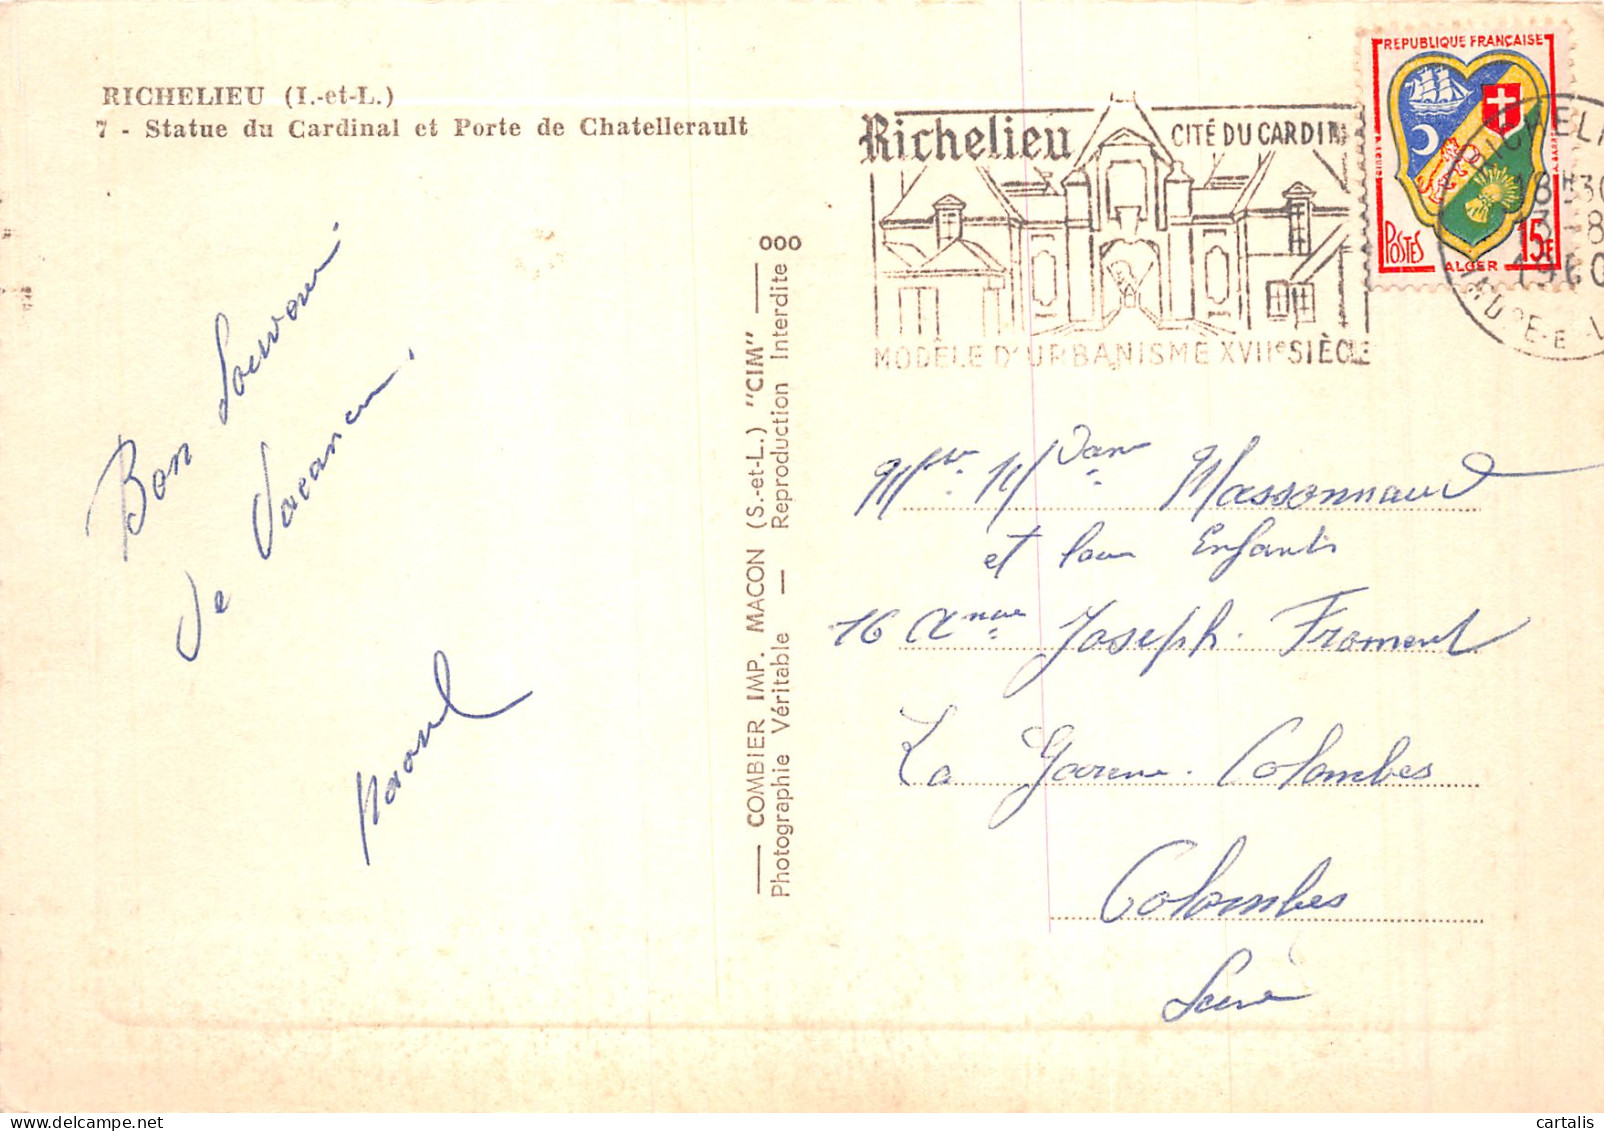 RICHELIEU (I.-et-L.)
7 - Statue du Cardinal et Porte de Chatellerault
Bon Souvenir
de Vacances.
Raoul
COMBIER IMP. MACON (S.-et-L.) "CIM"
Photographie Véritable — Reproduction Interdite
000
Richelieu CITÉ DU CARDIN
MODÈLE D'URBANISME XVIIe SIÈCLE
REPUBLIQUE FRANÇAISE
POSTES
ALGER
15F
RICHELI
18H30
13-8
1960
INDRE-E
Mr. Mdame Massonnaud
et leurs Enfants
16 Avenue Joseph. Froment
La Garenne. Colombes
Colombes
Seine
cartalis delcampe.net